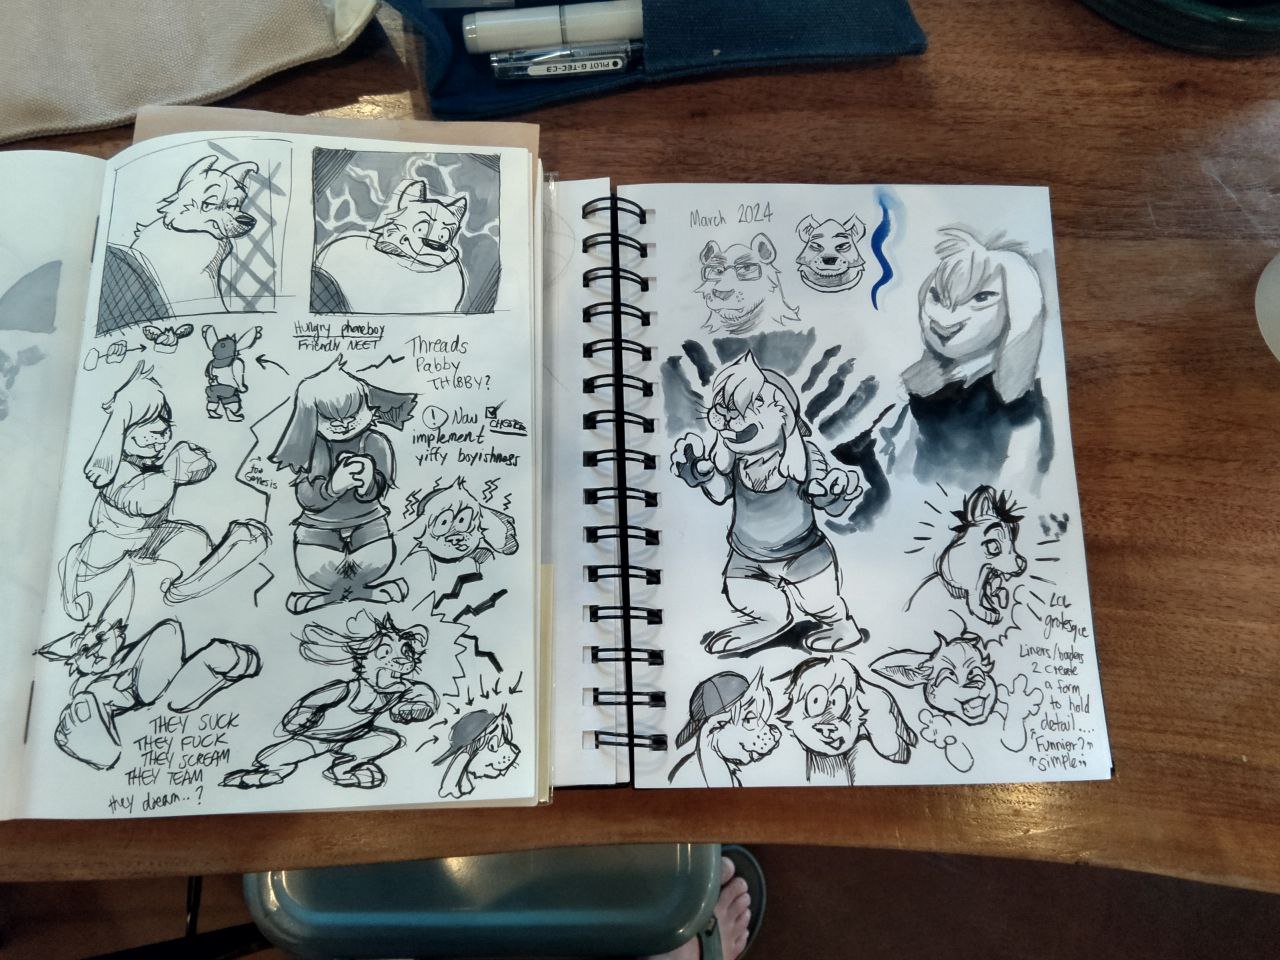 PILOT G-TEC-C3
Hungry phoneboy
Friendly NEET
Threads
Pabby
! Now
implement
yiffy boyishness
THEY SUCK
THEY FUCK
THEY SCREAM
THEY TEAM
they dream..?
March 2024
grotesque
Liners/borders
2 create
a form
to hold
detail....
"Funnier?"
"simple"